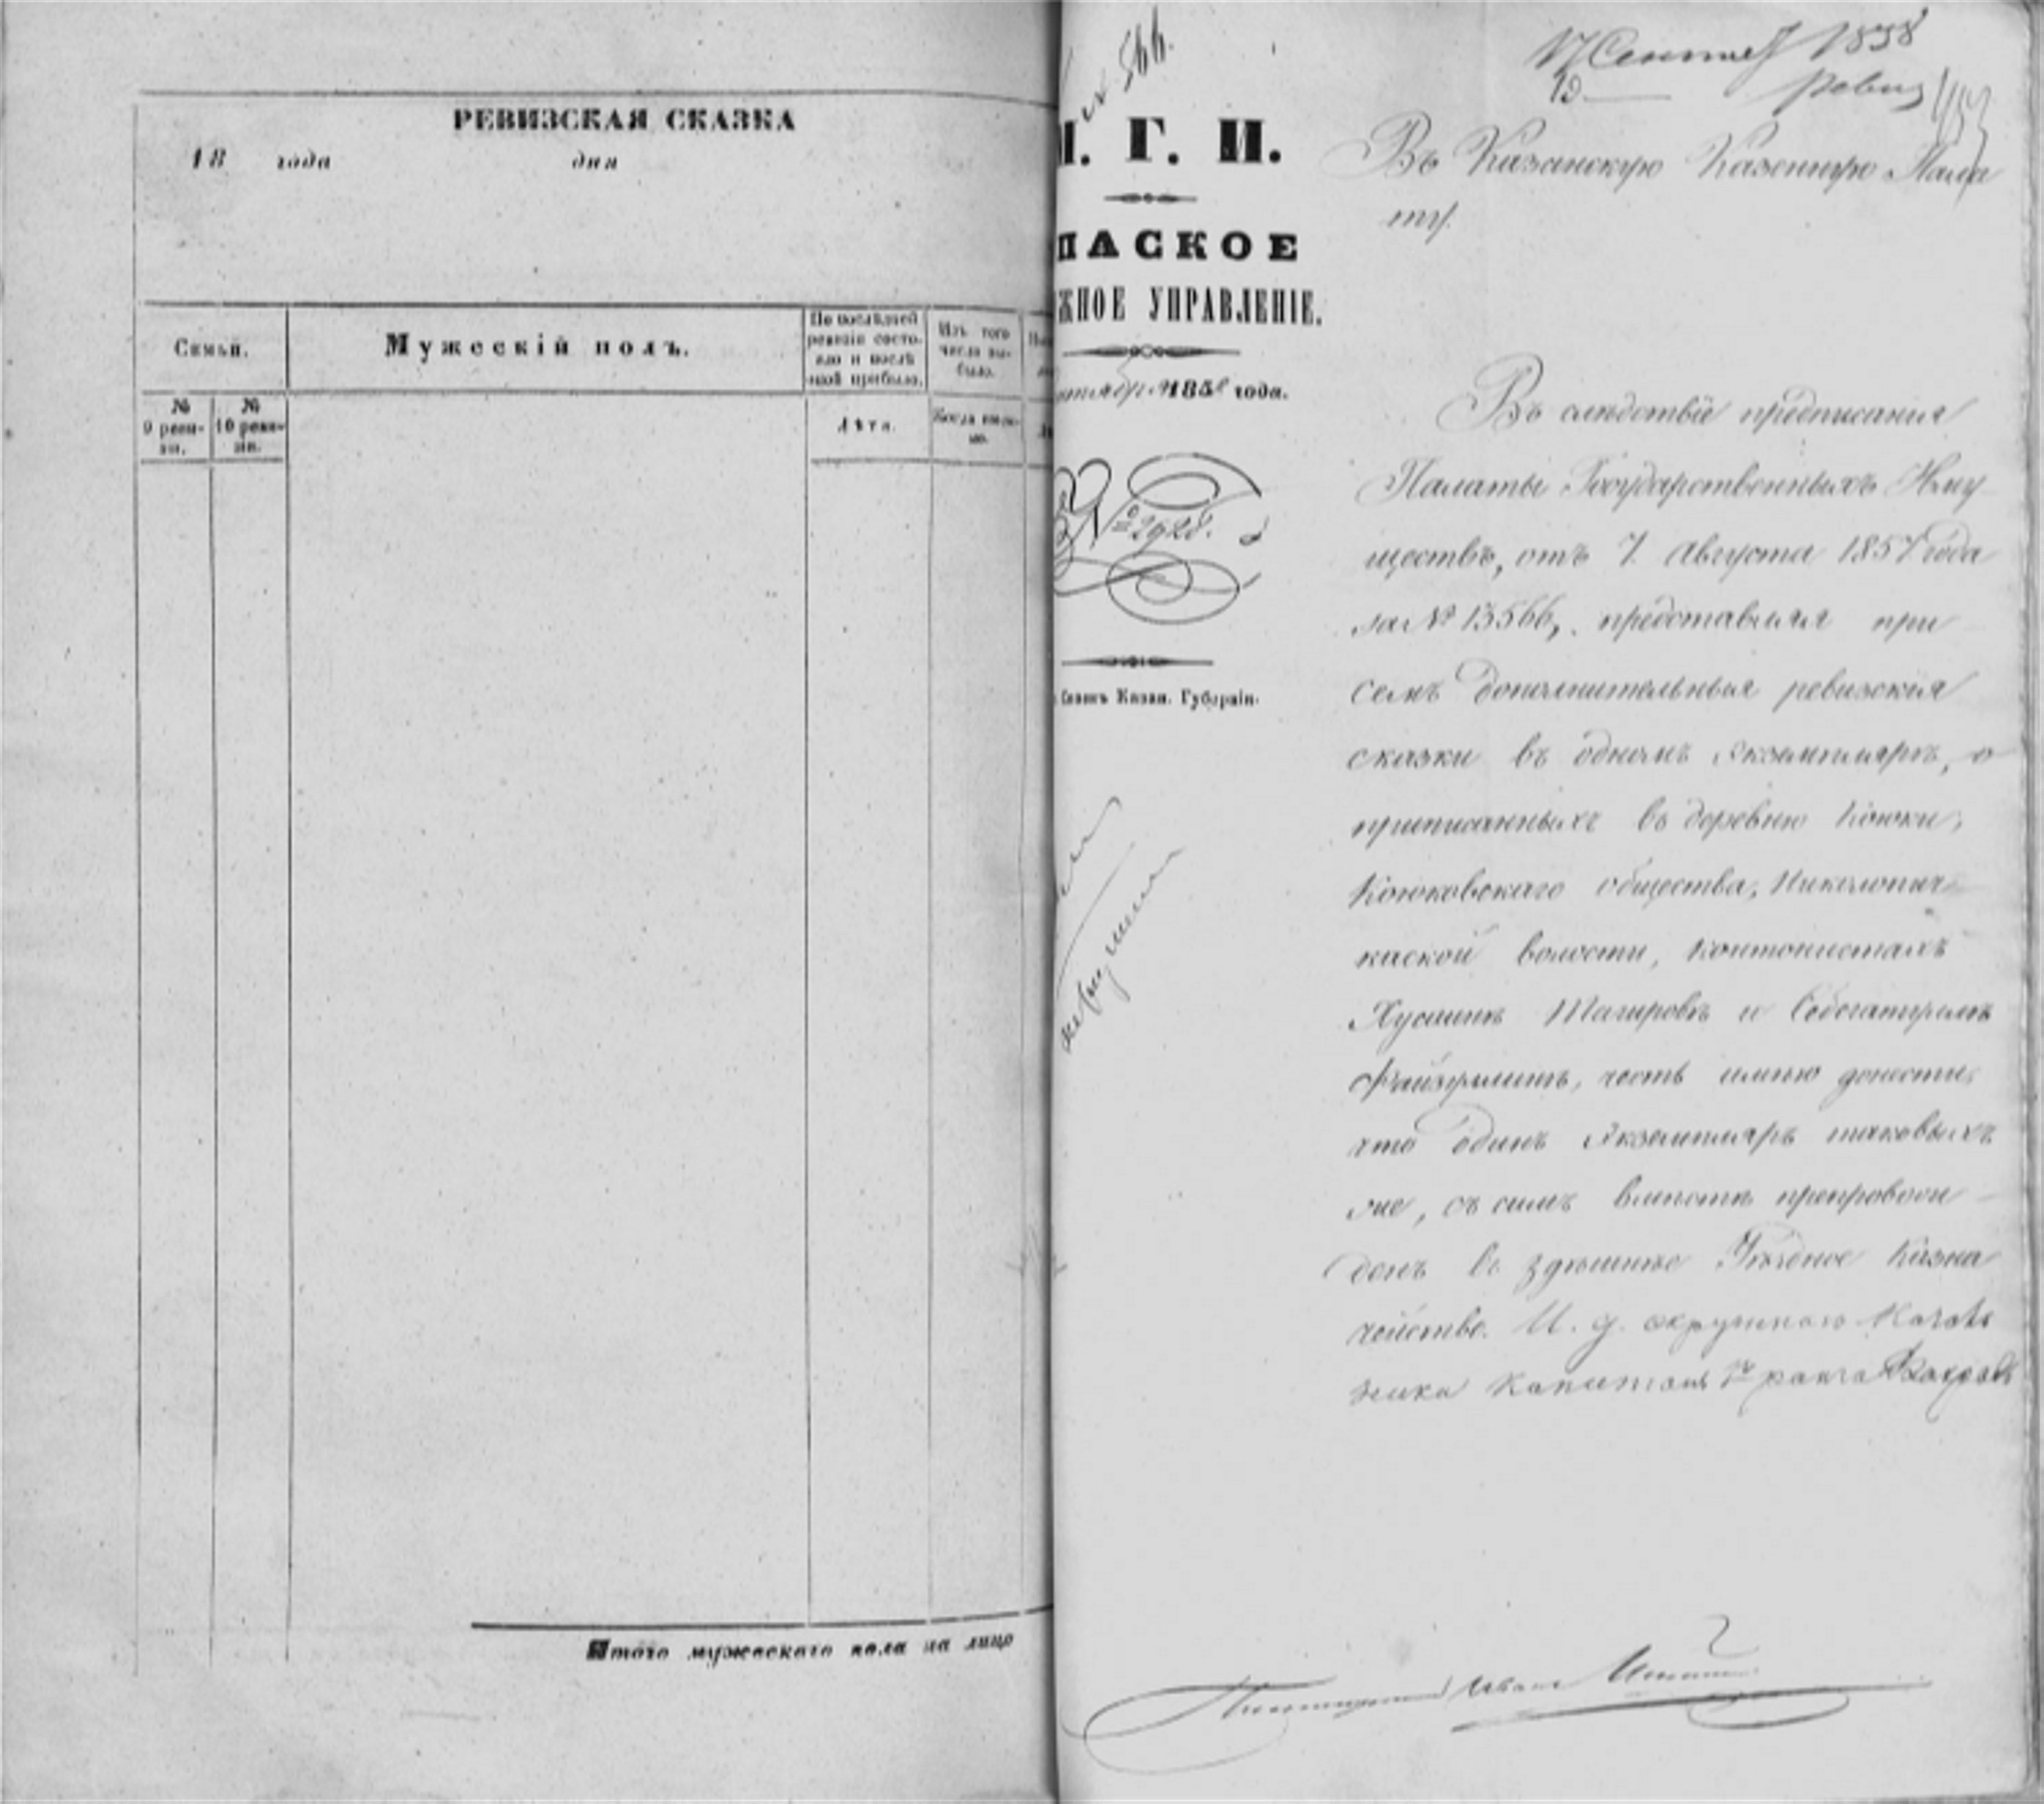 РЕВИЗСКАЯ СКАЗКА
18 года дня
Семьи.
Мужескій полъ.
По послѣдней ревизіи состояло и послѣ оной прибыло.
Изъ того числа выбыло.
№ 9 ревизіи.
№ 10 ревизіи.
Лѣта.
Когда именно.
Итого мужескаго пола на лицо
566.
Г. И.
ПАСКОЕ
ЖНОЕ УПРАВЛЕНІЕ.
1858 года.
№ 2928.
Казан. Губерніи.
17 Сентяб 1858
19 ревиз
Въ Казанскую Казенную Пала
ту.
Въ слѣдствіе предписанія
Палаты Государственныхъ Иму
ществъ, отъ 7. Августа 1857 года
за № 13566, представляя при
семъ дополнительныя ревизскія
сказки въ одномъ экземплярѣ, о
приписанныхъ въ деревню Коюки,
Коюковскаго общества,
волости, кантонистахъ
Хусаинѣ Тагировѣ и
Файзулинѣ, честь имѣю донести,
что одинъ экземпляръ таковыхъ
же, съ симъ вмѣстѣ препровож
денъ въ здѣшнее Уѣздное Казна
чейство. И. д. окружнаго Началь
ника Капитанъ ранга
Иванъ